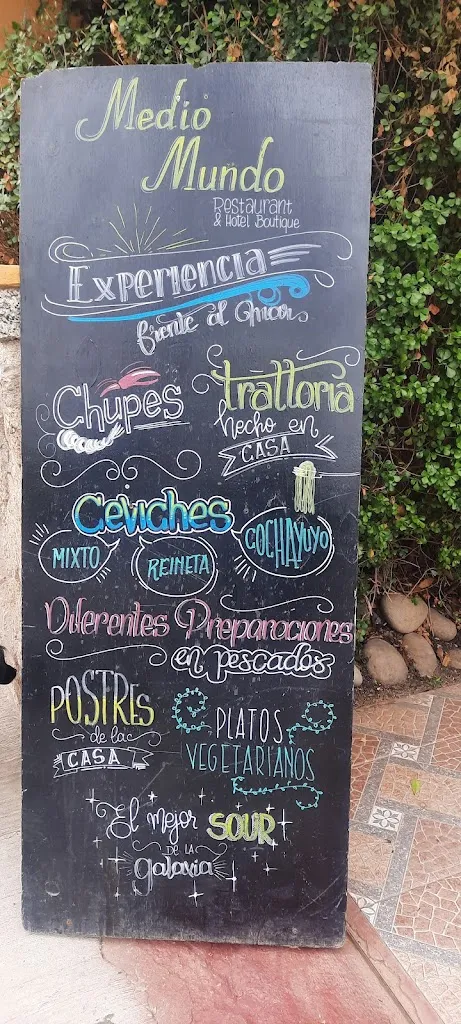 Medio
Mundo
Restaurant
& Hotel Boutique
Experiencia
frente al
Chupes
trattoria
hecho en
CASA
Ceviches
MIXTO
REINETA
COCHAYUYO
Diferentes Preparaciones
en pescados
POSTRES
de la
CASA
PLATOS
VEGETARIANOS
El mejor SOUR
DE LA
galaxia